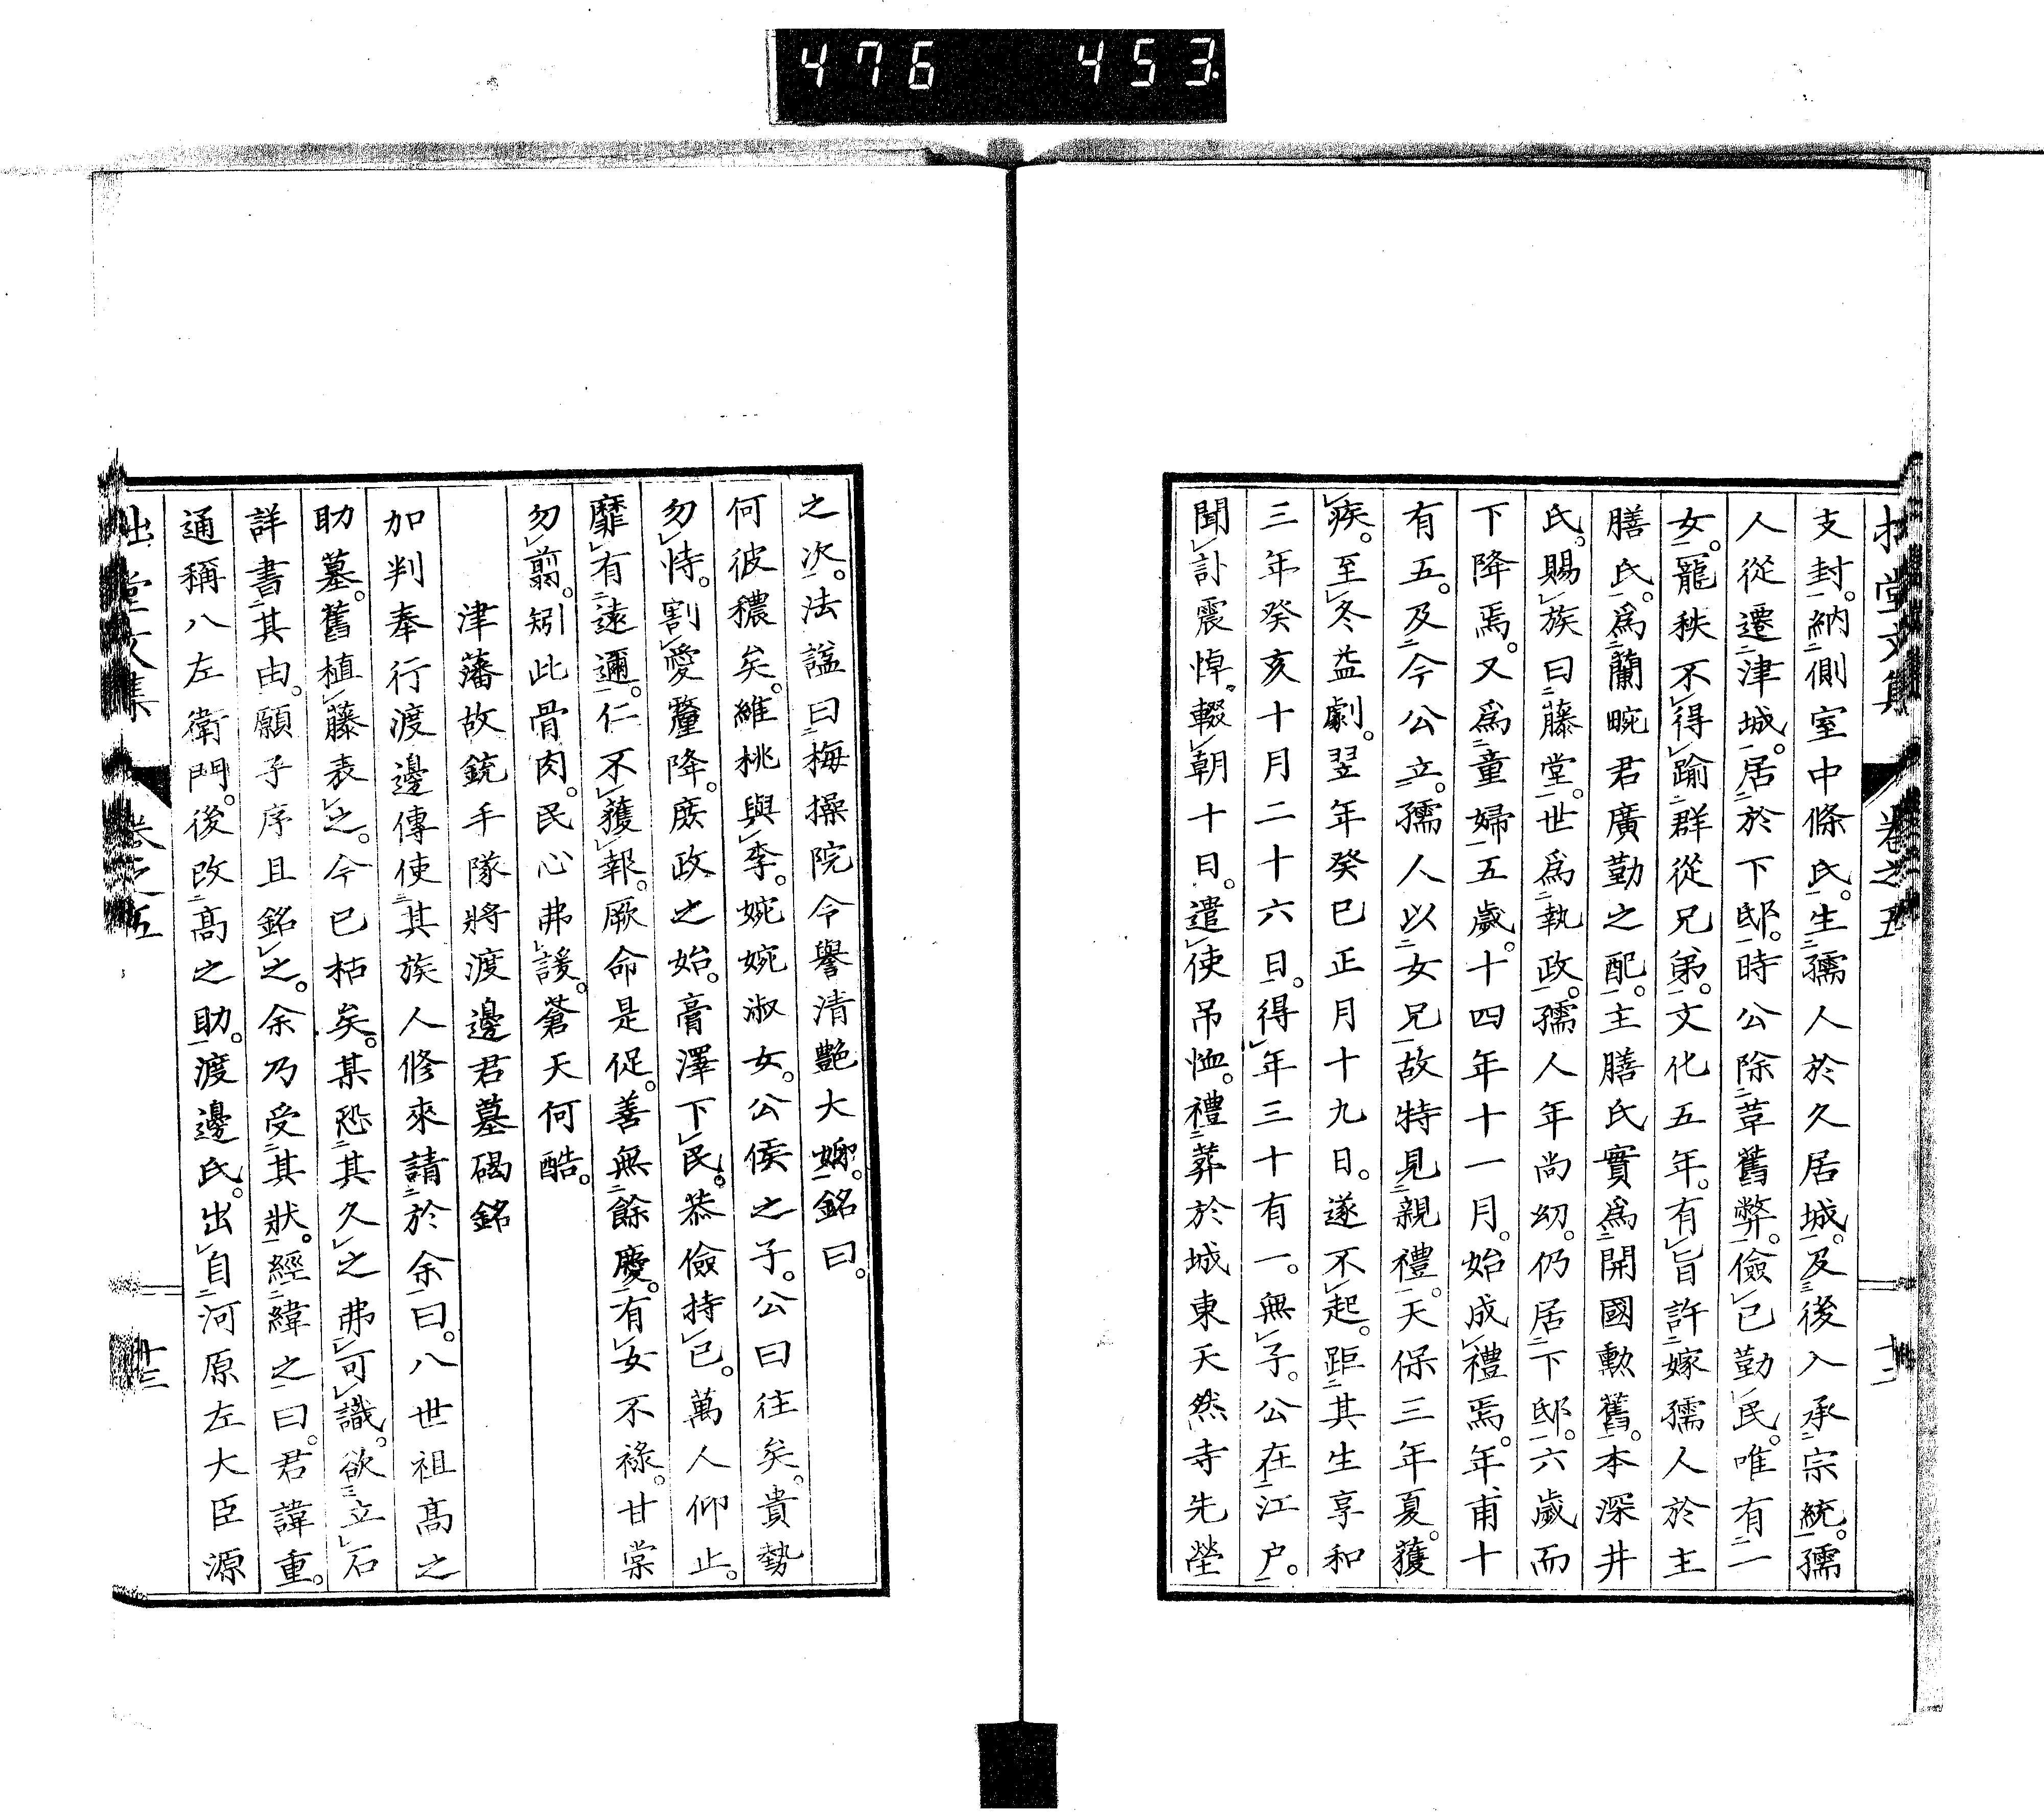 476 453
拙堂文集 卷之五 十二
支封。納側室中條氏。生孺人於久居城。及後入承宗統。孺
人從遷津城。居於下邸。時公除葦舊弊。儉已勤民。唯有二
女。寵秩不得踰群從兄弟。文化五年。有旨許嫁孺人於主
膳氏。爲蘭畹君廣勤之配。主膳氏實爲開國勲舊。本深井
氏。賜族曰藤堂。世爲執政。孺人年尚幼。仍居下邸。六歲而
下降焉。又爲童婦五歲。十四年十一月。始成禮焉。年甫十
有五。及今公立。孺人以女兄故特見親禮。天保三年夏。獲
疾。至冬益劇。翌年癸巳正月十九日。遂不起。距其生享和
三年癸亥十月二十六日。得年三十有一。無子。公在江户。
聞訃震悼。輟朝十日。遣使吊恤。禮葬於城東天然寺先塋
之次。法諡曰梅操院令譽清艷大姉。銘曰。
何彼穠矣。維桃與李。婉婉淑女。公侯之子。公曰往矣。貴勢
勿恃。割愛釐降。庶政之始。膏澤下民。恭儉持已。萬人仰止。
靡有遠邇。仁不獲報。厥命是促。善無餘慶。有女不祿。甘棠
勿翦。矧此骨肉。民心弗諼。蒼天何酷。
津藩故銃手隊將渡邊君墓碣銘
加判奉行渡邊傳使其族人修來請於余曰。八世祖髙之
助墓。舊植藤表之。今已枯矣。某恐其久之弗可識。欲立石
詳書其由。願子序且銘之。余乃受其狀。經緯之曰。君諱重。
通稱八左衛門。後改髙之助。渡邊氏。出自河原左大臣源
拙堂文集 卷之五 十三